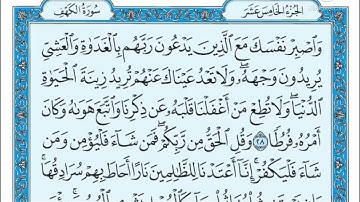 الجُزْءُ الخَامِسَ عَشَرَ سُورَةُ الكَهْفِ
وَاصْبِرْ نَفْسَكَ مَعَ الَّذِينَ يَدْعُونَ رَبَّهُم بِالْغَدَوٰةِ وَالْعَشِيِّ
يُرِيدُونَ وَجْهَهُۥ وَلَا تَعْدُ عَيْنَاكَ عَنْهُمْ تُرِيدُ زِينَةَ الْحَيَوٰةِ
الدُّنْيَا وَلَا تُطِعْ مَنْ أَغْفَلْنَا قَلْبَهُۥ عَن ذِكْرِنَا وَاتَّبَعَ هَوَىٰهُ وَكَانَ
أَمْرُهُۥ فُرُطًا ٢٨ وَقُلِ الْحَقُّ مِن رَّبِّكُمْ فَمَن شَآءَ فَلْيُؤْمِن وَمَن
شَآءَ فَلْيَكْفُرْ إِنَّآ أَعْتَدْنَا لِلظَّٰلِمِينَ نَارًا أَحَاطَ بِهِمْ سُرَادِقُهَا